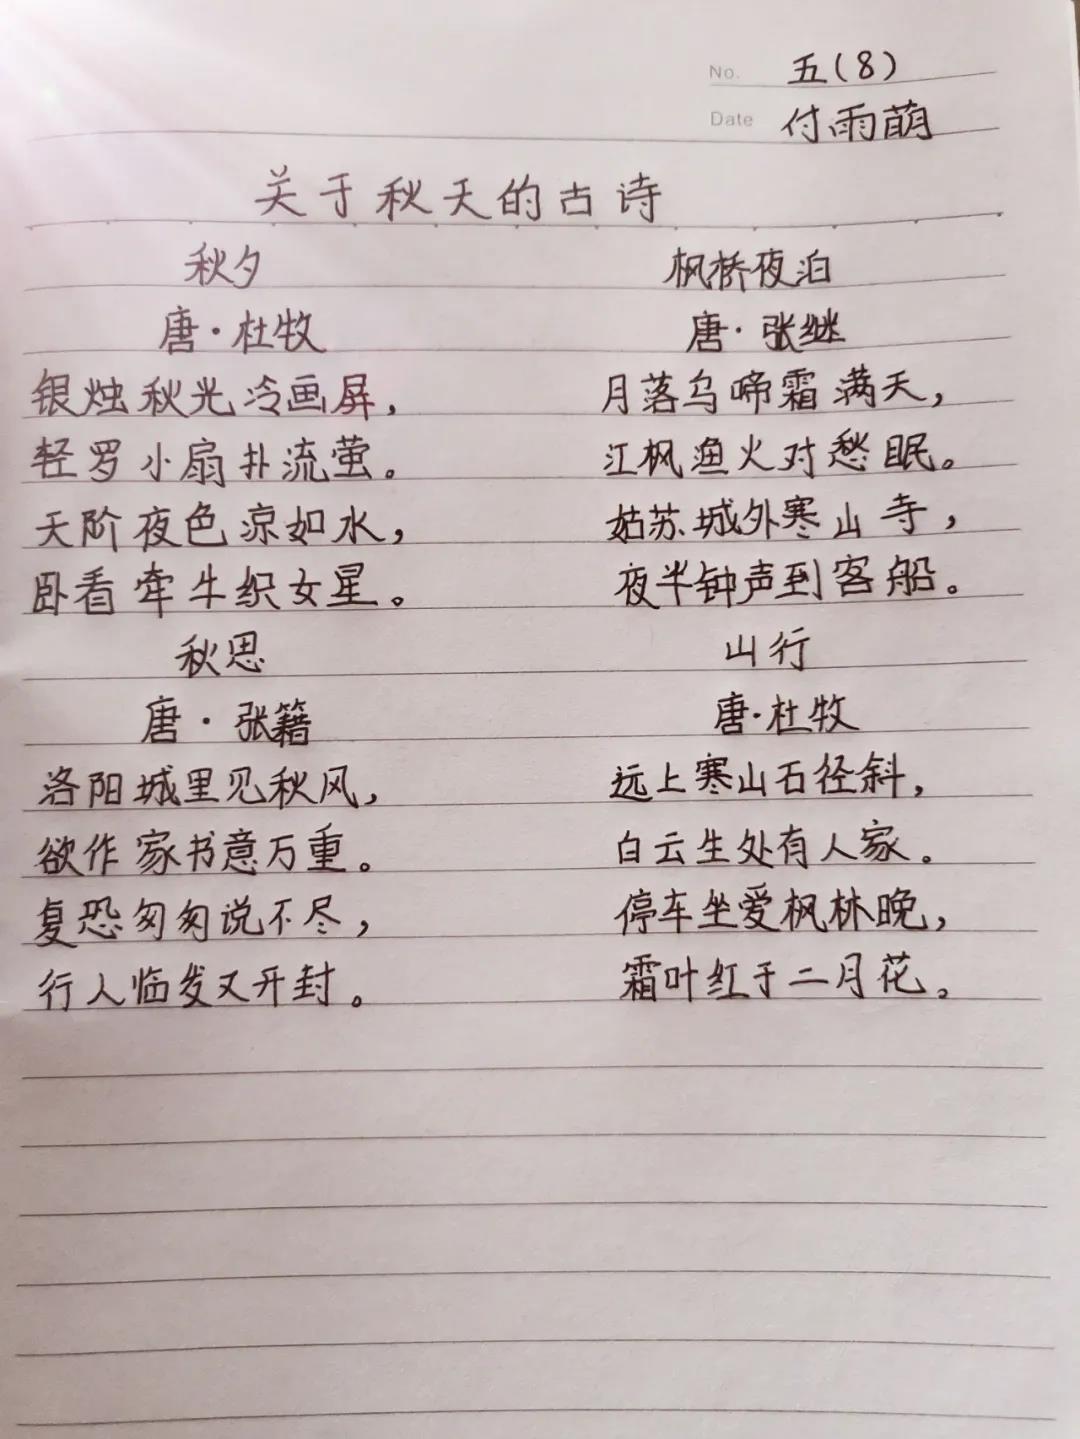 No. 五(8)
Date 付雨萌
关于秋天的古诗
秋夕
唐·杜牧
银烛秋光冷画屏,
轻罗小扇扑流萤。
天阶夜色凉如水,
卧看牵牛织女星。
枫桥夜泊
唐·张继
月落乌啼霜满天,
江枫渔火对愁眠。
姑苏城外寒山寺,
夜半钟声到客船。
秋思
唐·张籍
洛阳城里见秋风,
欲作家书意万重。
复恐匆匆说不尽,
行人临发又开封。
山行
唐·杜牧
远上寒山石径斜,
白云生处有人家。
停车坐爱枫林晚,
霜叶红于二月花。